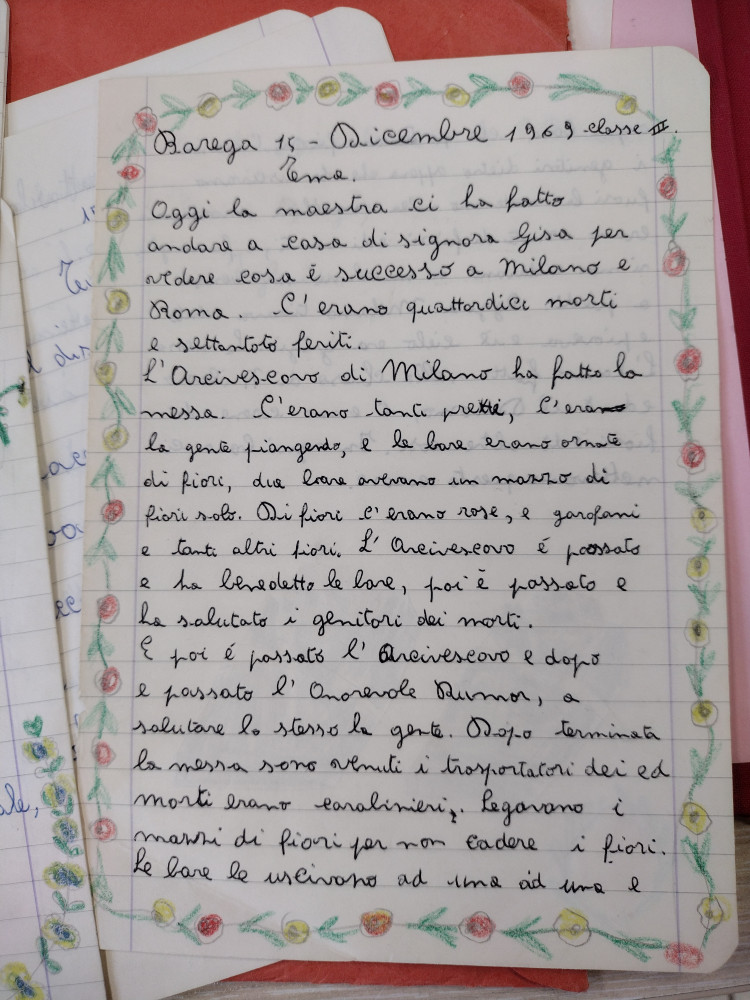 Barega 15 - Dicembre 1969 classe III.
Tema.
Oggi la maestra ci ha fatto
andare a casa di signora Gisa per
vedere cosa é successo a Milano e
Roma. C'erano quattordici morti
e settantoto feriti.
L'Arcivescovo di Milano ha fatto la
messa. C'erano tanti preti, C'erano
la gente piangendo, e le bare erano ornate
di fiori, due bare avevano un mazzo di
fiori solo. Di fiori c'erano rose, e garofani
e tanti altri fiori. L'Arcivescovo é passato
e ha benedetto le bare, poi é passato e
ha salutato i genitori dei morti.
E poi é passato l'Arcivescovo e dopo
e passato l'Onorevole Rumor, a
salutare lo stesso la gente. Dopo terminata
la messa sono venuti i trasportatori dei ed
morti erano carabinieri. Legavano i
mazzi di fiori per non cadere i fiori.
Le bare le uscivano ad una ad una e